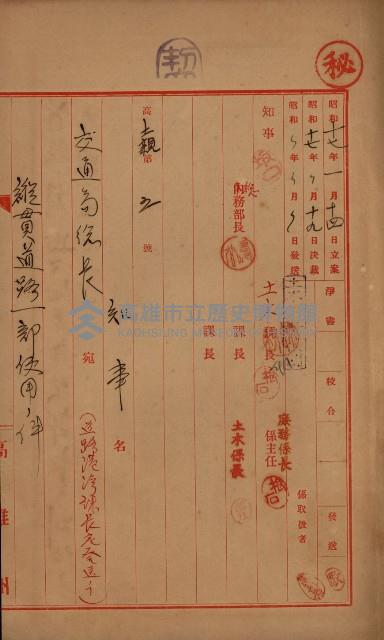 秘
昭和十七年一月十四日立案
淨書
校合
發送
昭和十七年〃月十九日決裁
昭和〃年〃月〃日發送
係取扱者
知事
內務部長
土木課長
庶務係長
係主任
課長
土木係長
課長
高土親第二號
交通局總長 宛
知事 名
(道路港灣課長元啓送リ)
縱貫道路一部使用ノ件
高雄州
高雄市立歷史博物館
KAOHSIUNG MUSEUM OF HISTORY